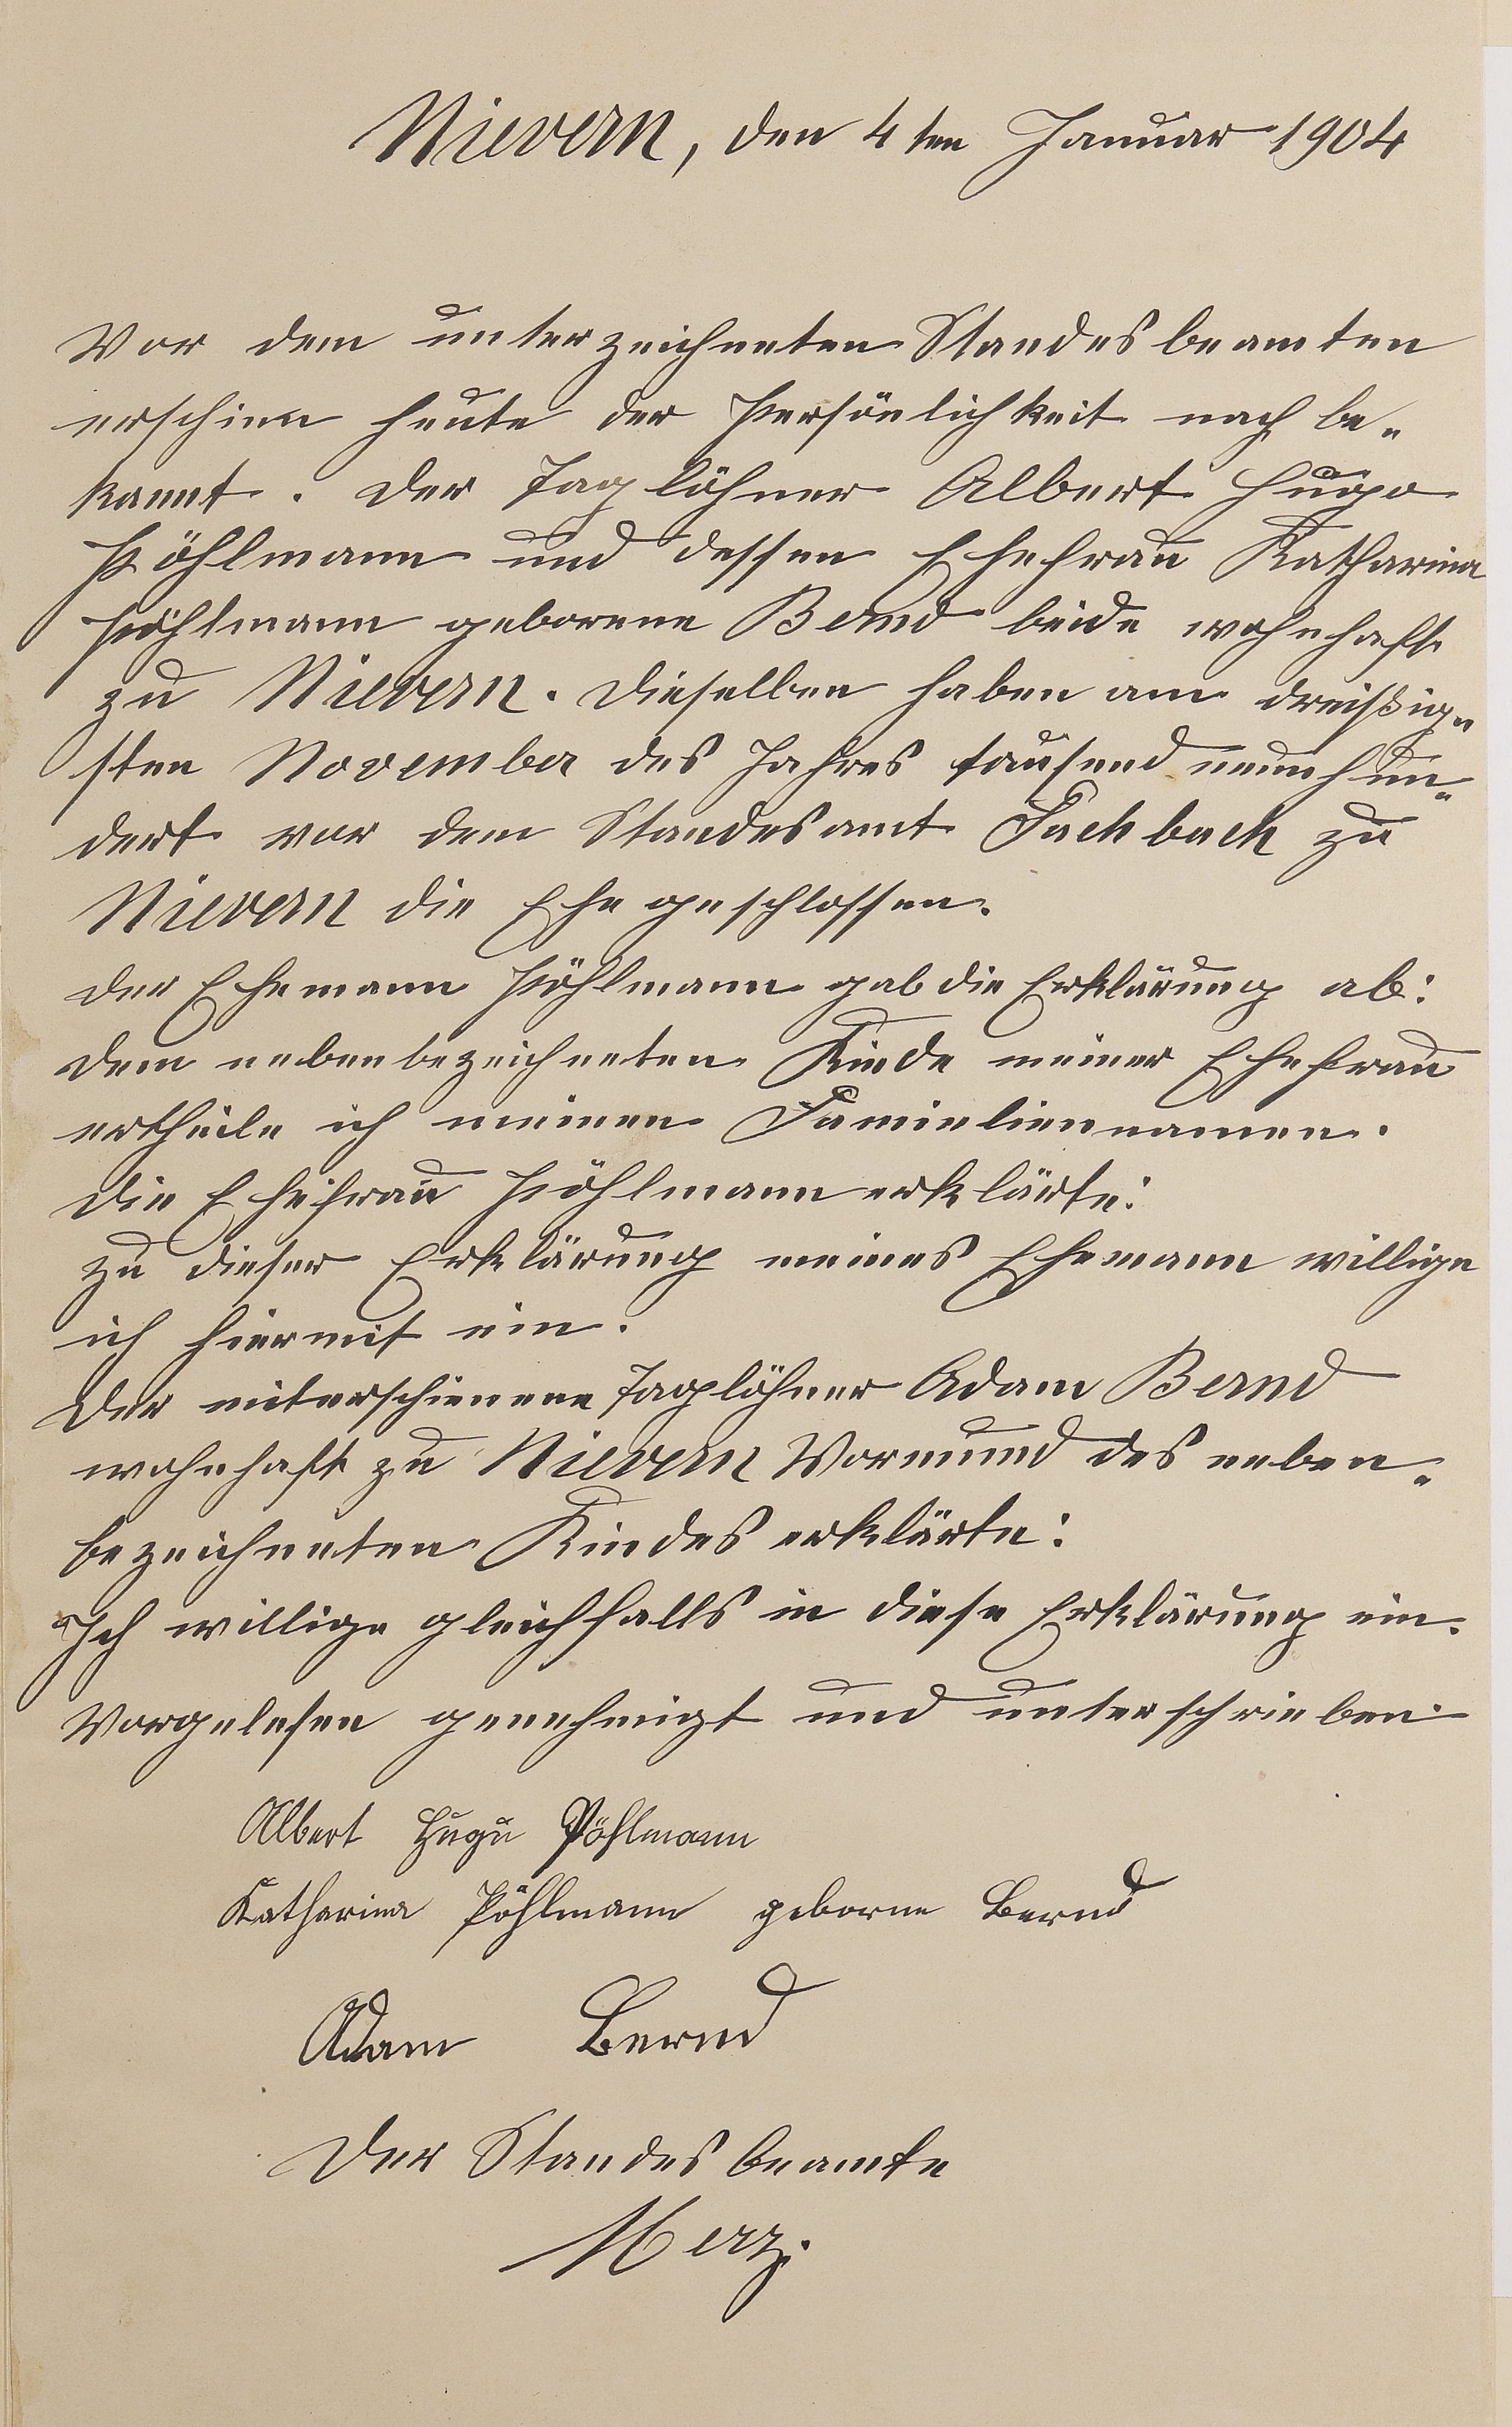 Nievern, den 4ten Januar 1904
Vor dem unterzeichneten Standesbeamten
erschien heute der Persönlichkeit nach be-
kannt. Der Taglöhner Albert Hugo
Pöhlmann und dessen Ehefrau Katharina
Pöhlmann geborene Bernd beide wohnhaft
zu Nievern. Dieselben haben am dreißig-
sten November des Jahres tausend neunhun-
dert vor dem Standesamt Fachbach zu
Nievern die Ehe geschlossen.
Der Ehemann Pöhlmann gab die Erklärung ab:
Dem nebenbezeichneten Kinde meiner Ehefrau
ertheile ich meinen Familiennamen.
Die Ehefrau Pöhlmann erklärte:
Zu dieser Erklärung meines Ehemann willige
ich hiermit ein.
Der miterschienene Taglöhner Adam Bernd
wohnhaft zu Nievern Vormund des neben-
bezeichneten Kindes erklärte:
Ich willige gleichfalls in diese Erklärung ein.
Vorgelesen genehmigt und unterschrieben
Albert Hugo Pöhlmann
Katharina Pöhlmann geborne Bernd
Adam Bernd
Der Standesbeamte
Merz.